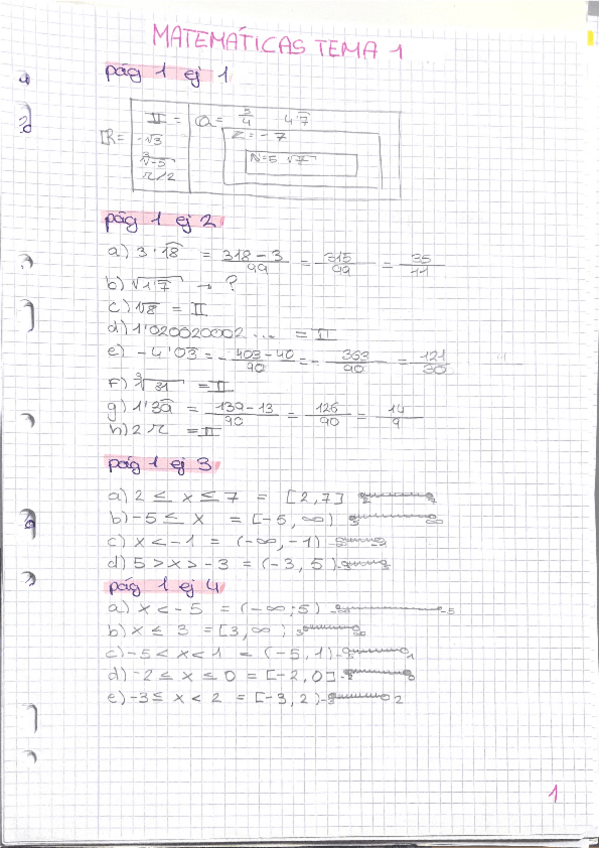 MATEMÁTICAS TEMA 1
pág 1 ej 1
II = Q = 3/4 4'7̂
R = -√3 Z = -7
∛-5 N = 5 √7
π/2
pág 1 ej 2
a) 3'18̂ = 318-3/99 = 315/99 = 35/11
b) √1'7 → ?
c) √8 = II
d) 1'020020002... = II
e) -4'03̂ = - 403-40/90 = - 363/90 = 121/30
f) ∛31 = II
g) 1'39̂ = 139-13/90 = 126/90 = 14/9
h) 2π = II
pág 1 ej 3
a) 2 ≤ x ≤ 7 = [2,7]
b) -5 ≤ x = [-5, ∞)
c) x < -1 = (-∞, -1)
d) 5 > x > -3 = (-3, 5)
pág 1 ej 4
a) x < -5 = (-∞; 5) -5
b) x ≤ 3 = [3, ∞)
c) -5 < x < 1 = (-5, 1)
d) -2 ≤ x ≤ 0 = [-2, 0]
e) -3 ≤ x < 2 = [-3, 2) -3 2
1